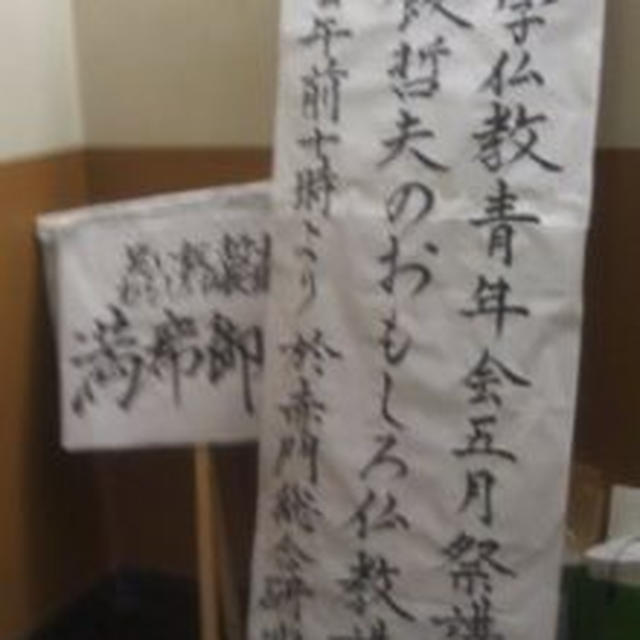 学仏教青年会五月祭講
哲夫のおもしろ仏教講
午前十時より 於赤門総合研
満席御